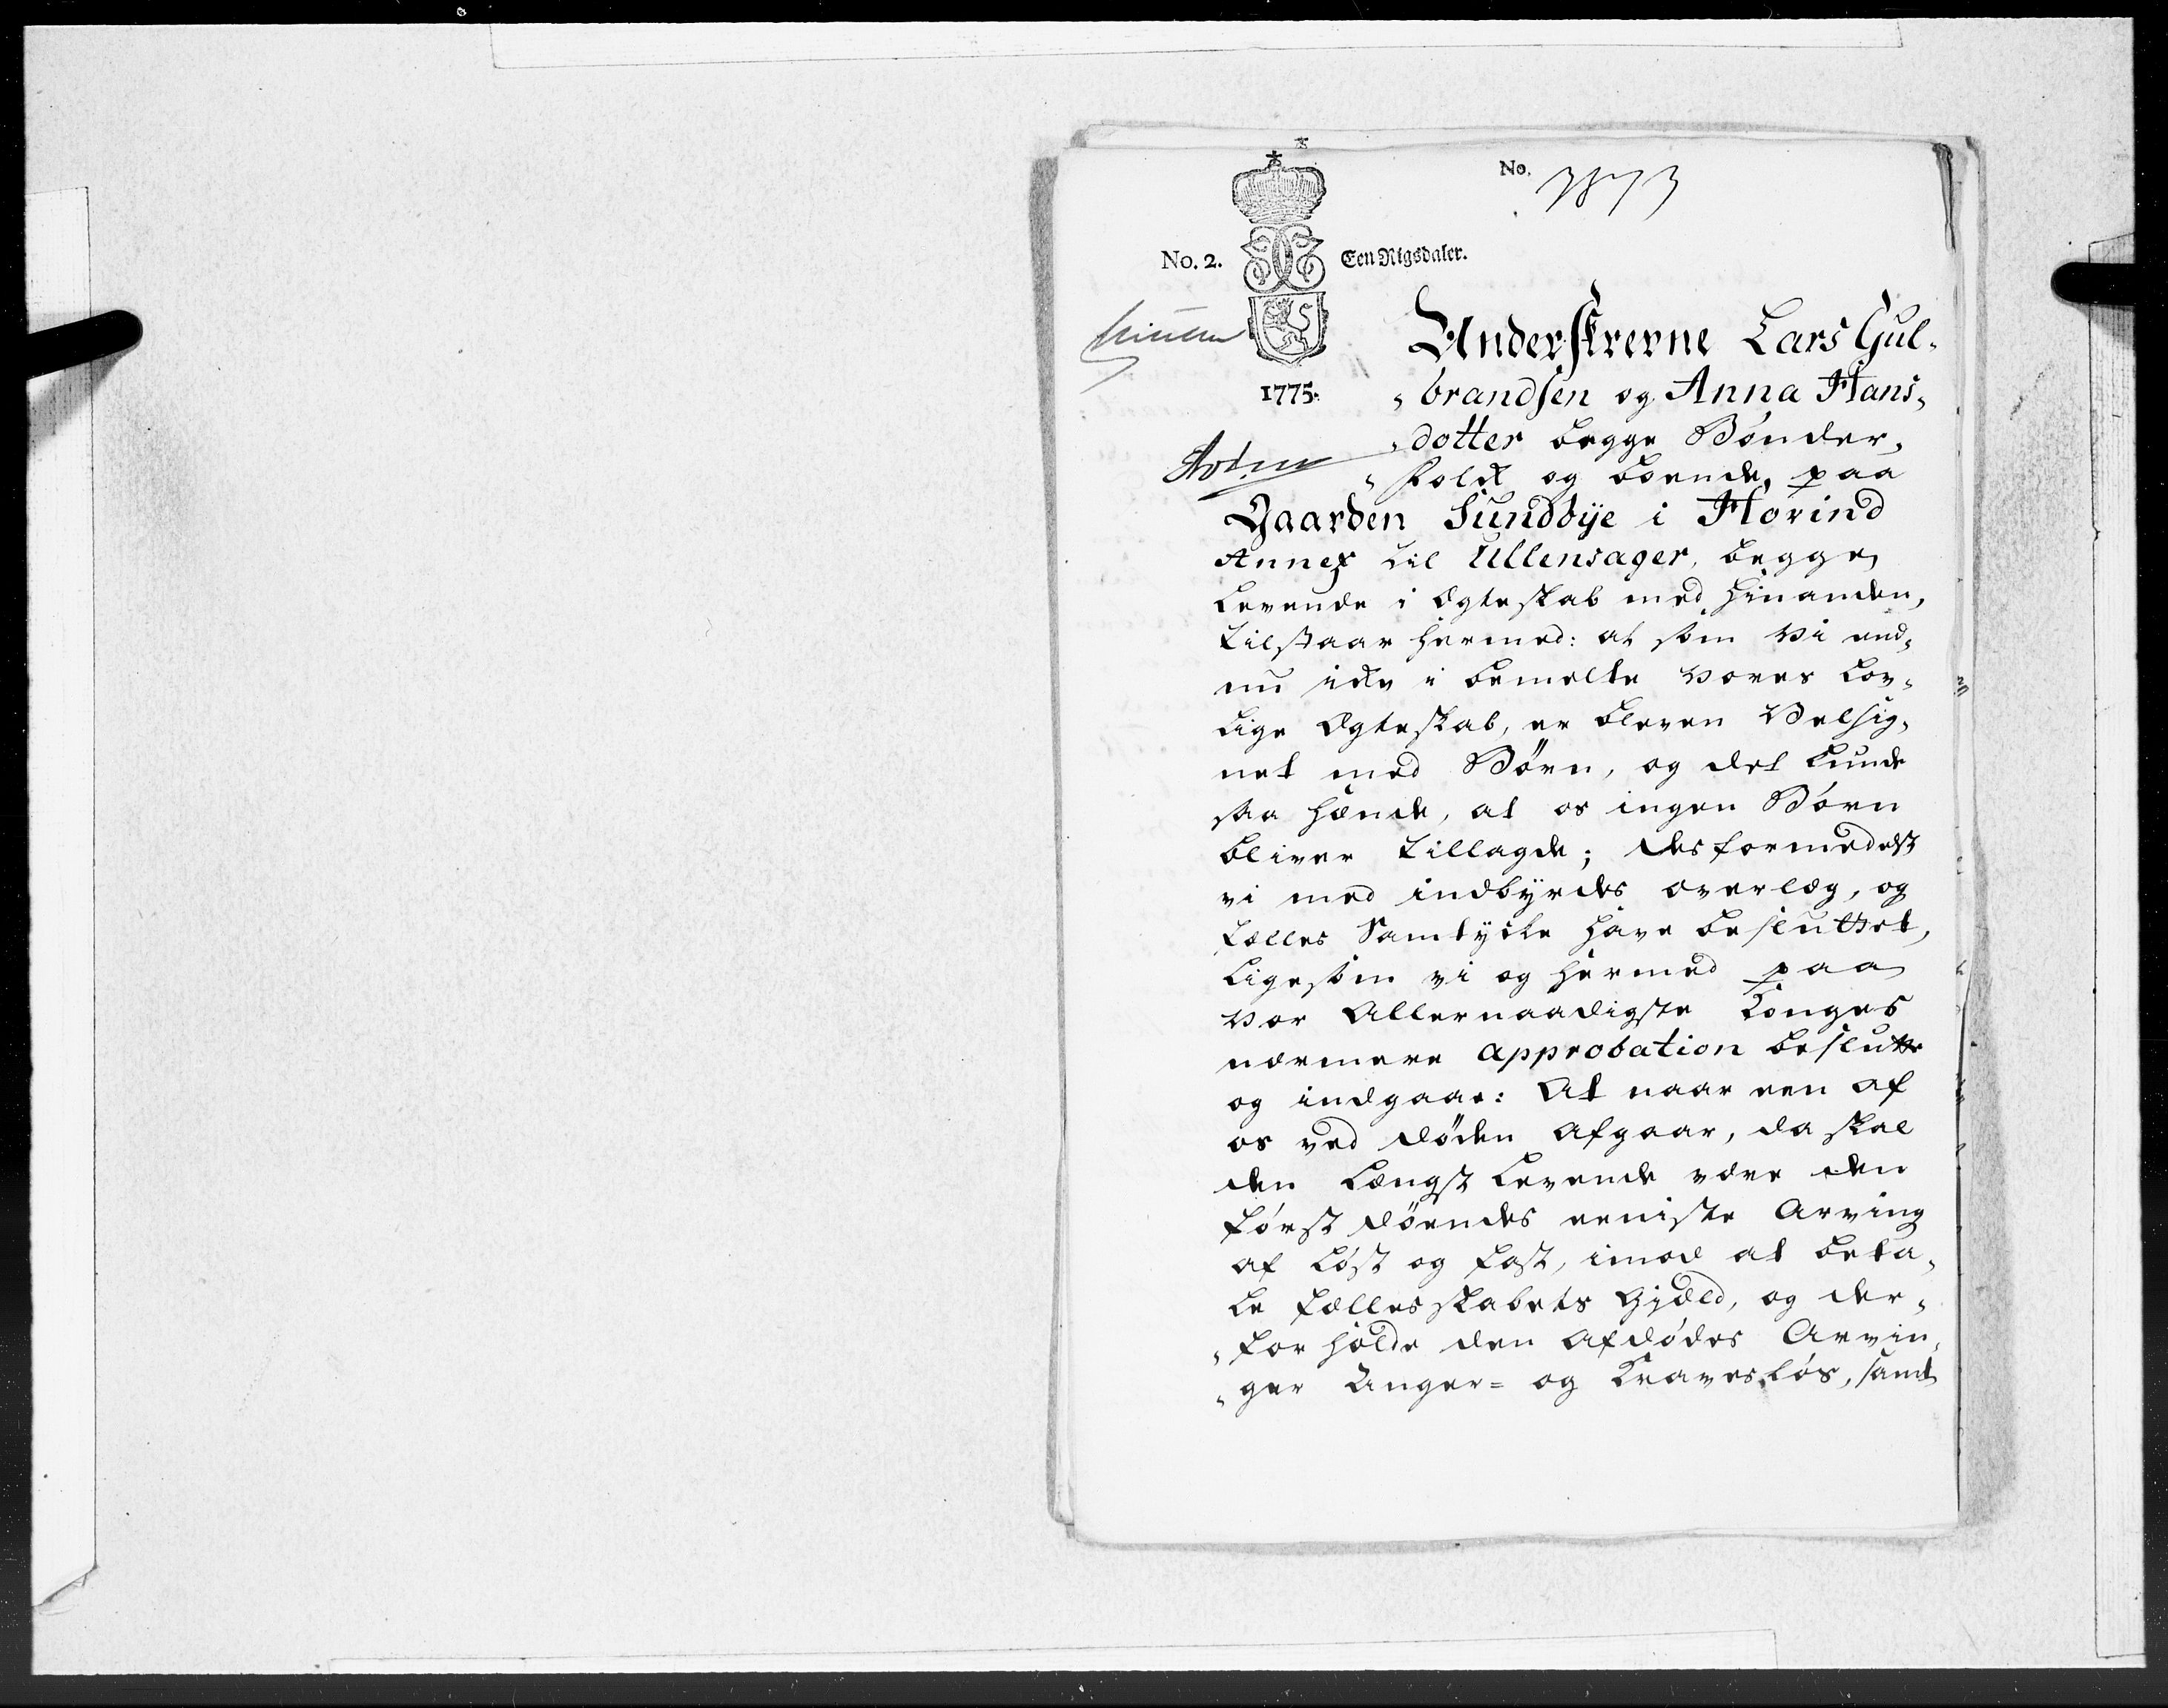 No.
No. 2. Een Rigsdaler.
1775.
Underskrevne Lars Gul-
brandsen og Anna Hans-
dotter begge Bønder-
folck og boende paa
Gaarden Sundbye i Hovind
Annex til Ullensager, begge
Levende i Egteskab med hinanden,
tilstaar hermed: at som vi end-
nu icke i bemelte vores Lov-
lige Egteskab, er bleven Velsig-
net med Börn, og det kunde
saa hænde, at os ingen Börn
bliver tillagde; desformedelst
vi med indbyrdes overlæg, og
fælles Samtycke have besluttet,
Ligesom vi og hermed paa
vor Allernaadigste Konges
nærmere approbation beslutte
og indgaar: At naar een af
os ved döden afgaar, da skal
den Længst Levende være den
först döendes eeniste Arving
af Löst og fast, imod at beta-
le fællesskabets Gjæld, og der-
for holde den afdödes Arvin-
ger Anger= og Kravesløs, samt